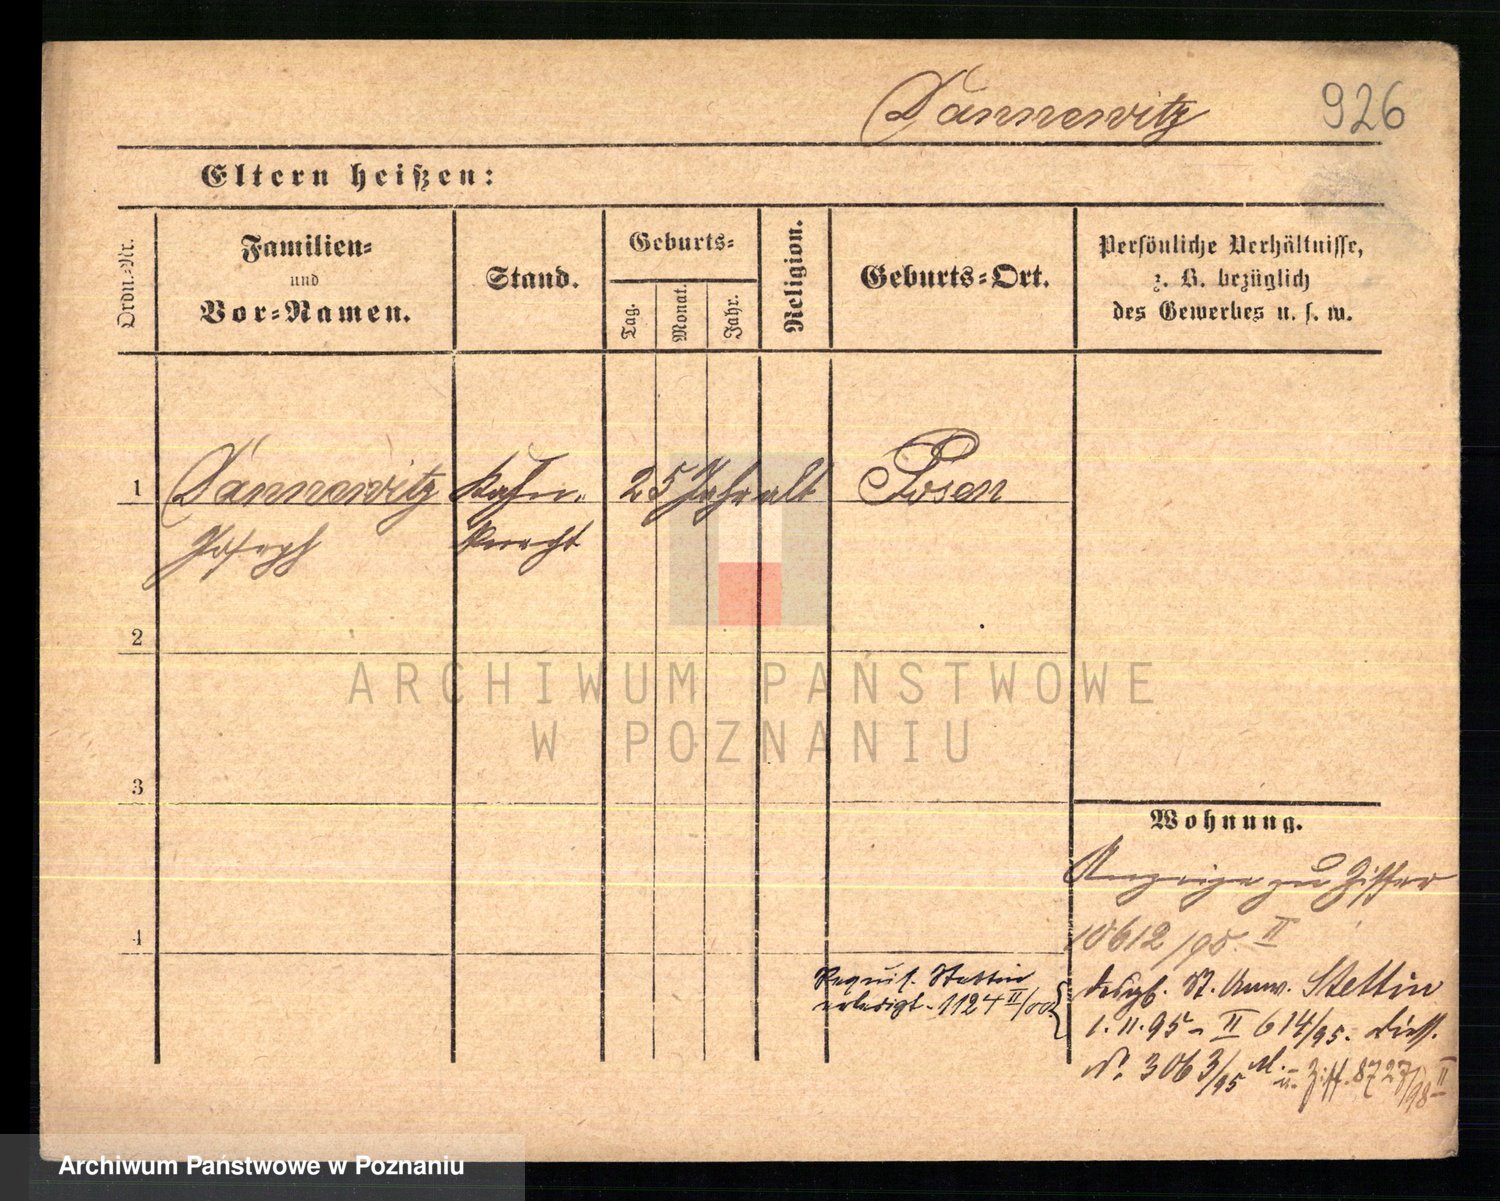 Dannewitz
926
Eltern heißen:
Ordn.-Nr.
Familien-
und
Vor-Namen.
Stand.
Geburts-
Tag.
Monat.
Jahr.
Religion.
Geburts-Ort.
Persönliche Verhältnisse,
z. B. bezüglich
des Gewerbes u. s. w.
1
Dannewitz
Joseph
Kahn-
knecht
25 Jahr alt
Posen
2
ARCHIWUM PAŃSTWOWE
W POZNANIU
3
Wohnung.
Anzeige zu Ziffer
10612/95. II
4
Requis. Stettin
erledigt. 1124 II/00.
desgl. St. Anw. Stettin
1. 11. 95 - II 614/95. diess.
No. 3063/95 M. u. Ziff. 8727/98 II
Archiwum Państwowe w Poznaniu